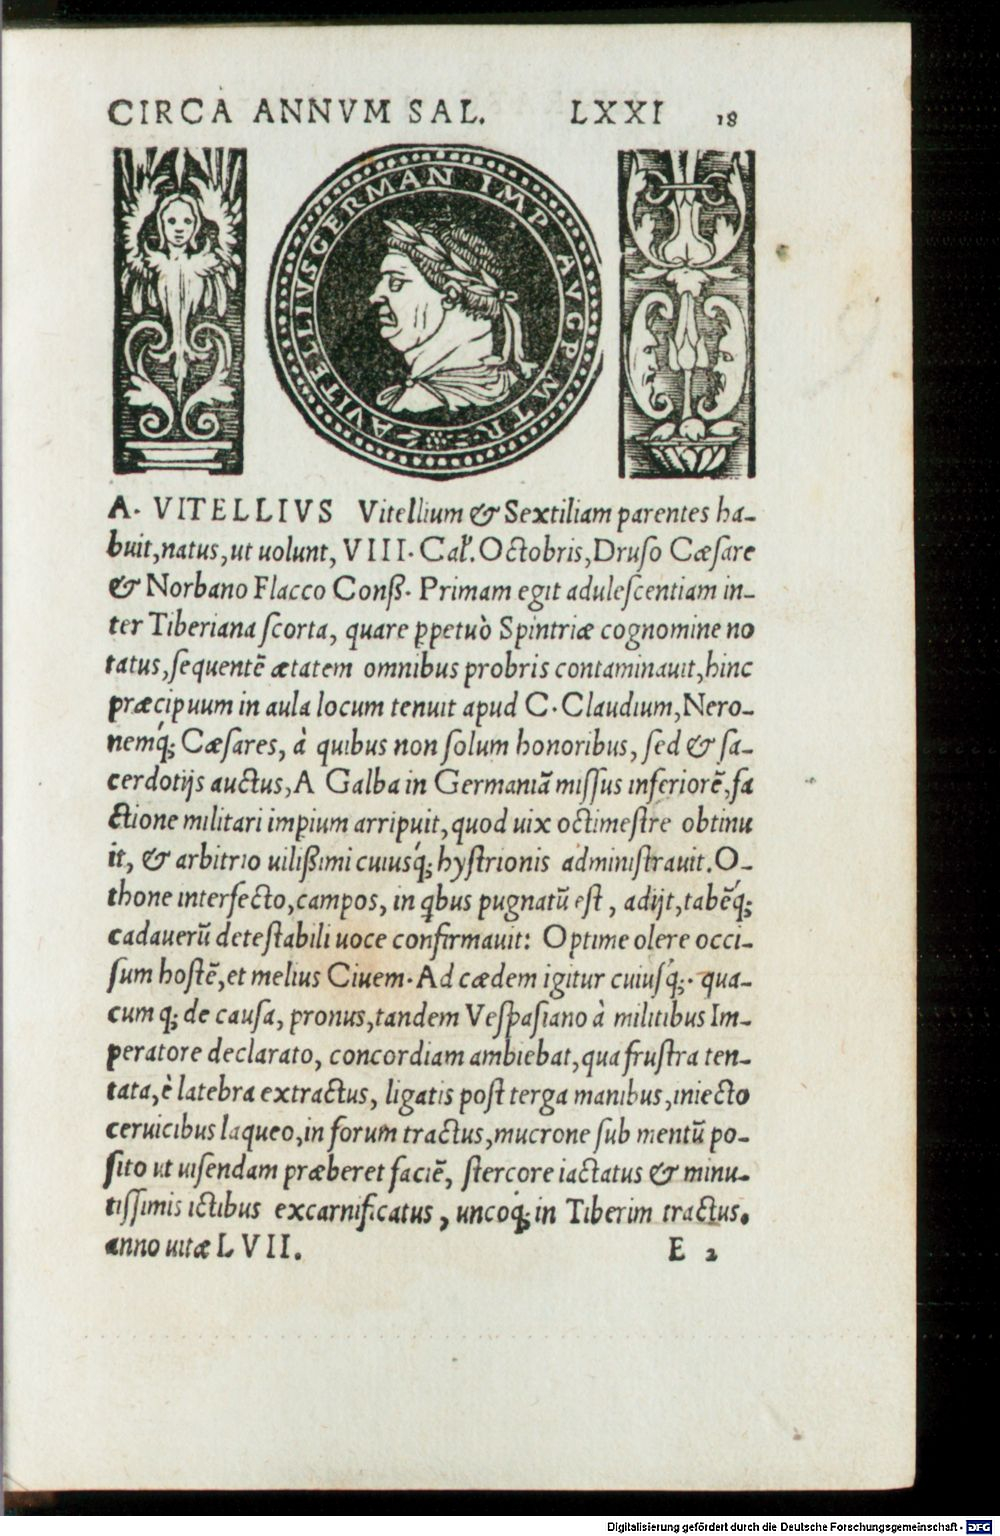 CIRCA ANNVM SAL. LXXI 18
A VITELLIUS GERMAN IMP AUG P M TR
A. VITELLIVS Vitellium & Sextiliam parentes ha-
buit, natus, ut uolunt, VIII. Cal'. Octobris, Druso Cæsare
& Norbano Flacco Conſß. Primam egit aduleſcentiam in-
ter Tiberiana ſcorta, quare ꝑpetuò Spintriæ cognomine no
tatus, ſequentē ætatem omnibus probris contaminauit, hinc
præcipuum in aula locum tenuit apud C. Claudium, Nero-
nemq́; Cæſares, à quibus non ſolum honoribus, ſed & ſa-
cerdotijs auctus, A Galba in Germaniā miſſus inferiorē, fa
ctione militari imꝑium arripuit, quod uix octimeſtre obtinu
it, & arbitrio uilißimi cuiusq́; hyſtrionis adminiſtrauit. O-
thone interfecto, campos, in qbus pugnatū eſt, adijt, tabēq́;
cadauerū deteſtabili uoce confirmauit: Optime olere occi-
ſum hoſtē, et melius Ciuem. Ad cædem igitur cuiuſq́;. qua-
cum q; de cauſa, pronus, tandem Veſpaſiano à militibus Im-
peratore declarato, concordiam ambiebat, qua fruſtra ten-
tata, è latebra extractus, ligatis poſt terga manibus, iniecto
ceruicibus laqueo, in forum tractus, mucrone ſub mentū po-
ſito ut uiſendam præberet faciē, ſtercore iactatus & minu-
tiſſimis ictibus excarnificatus, uncoq́; in Tiberim tractus.
anno uitæ LVII. E 2
Digitalisierung gefördert durch die Deutsche Forschungsgemeinschaft - DFG